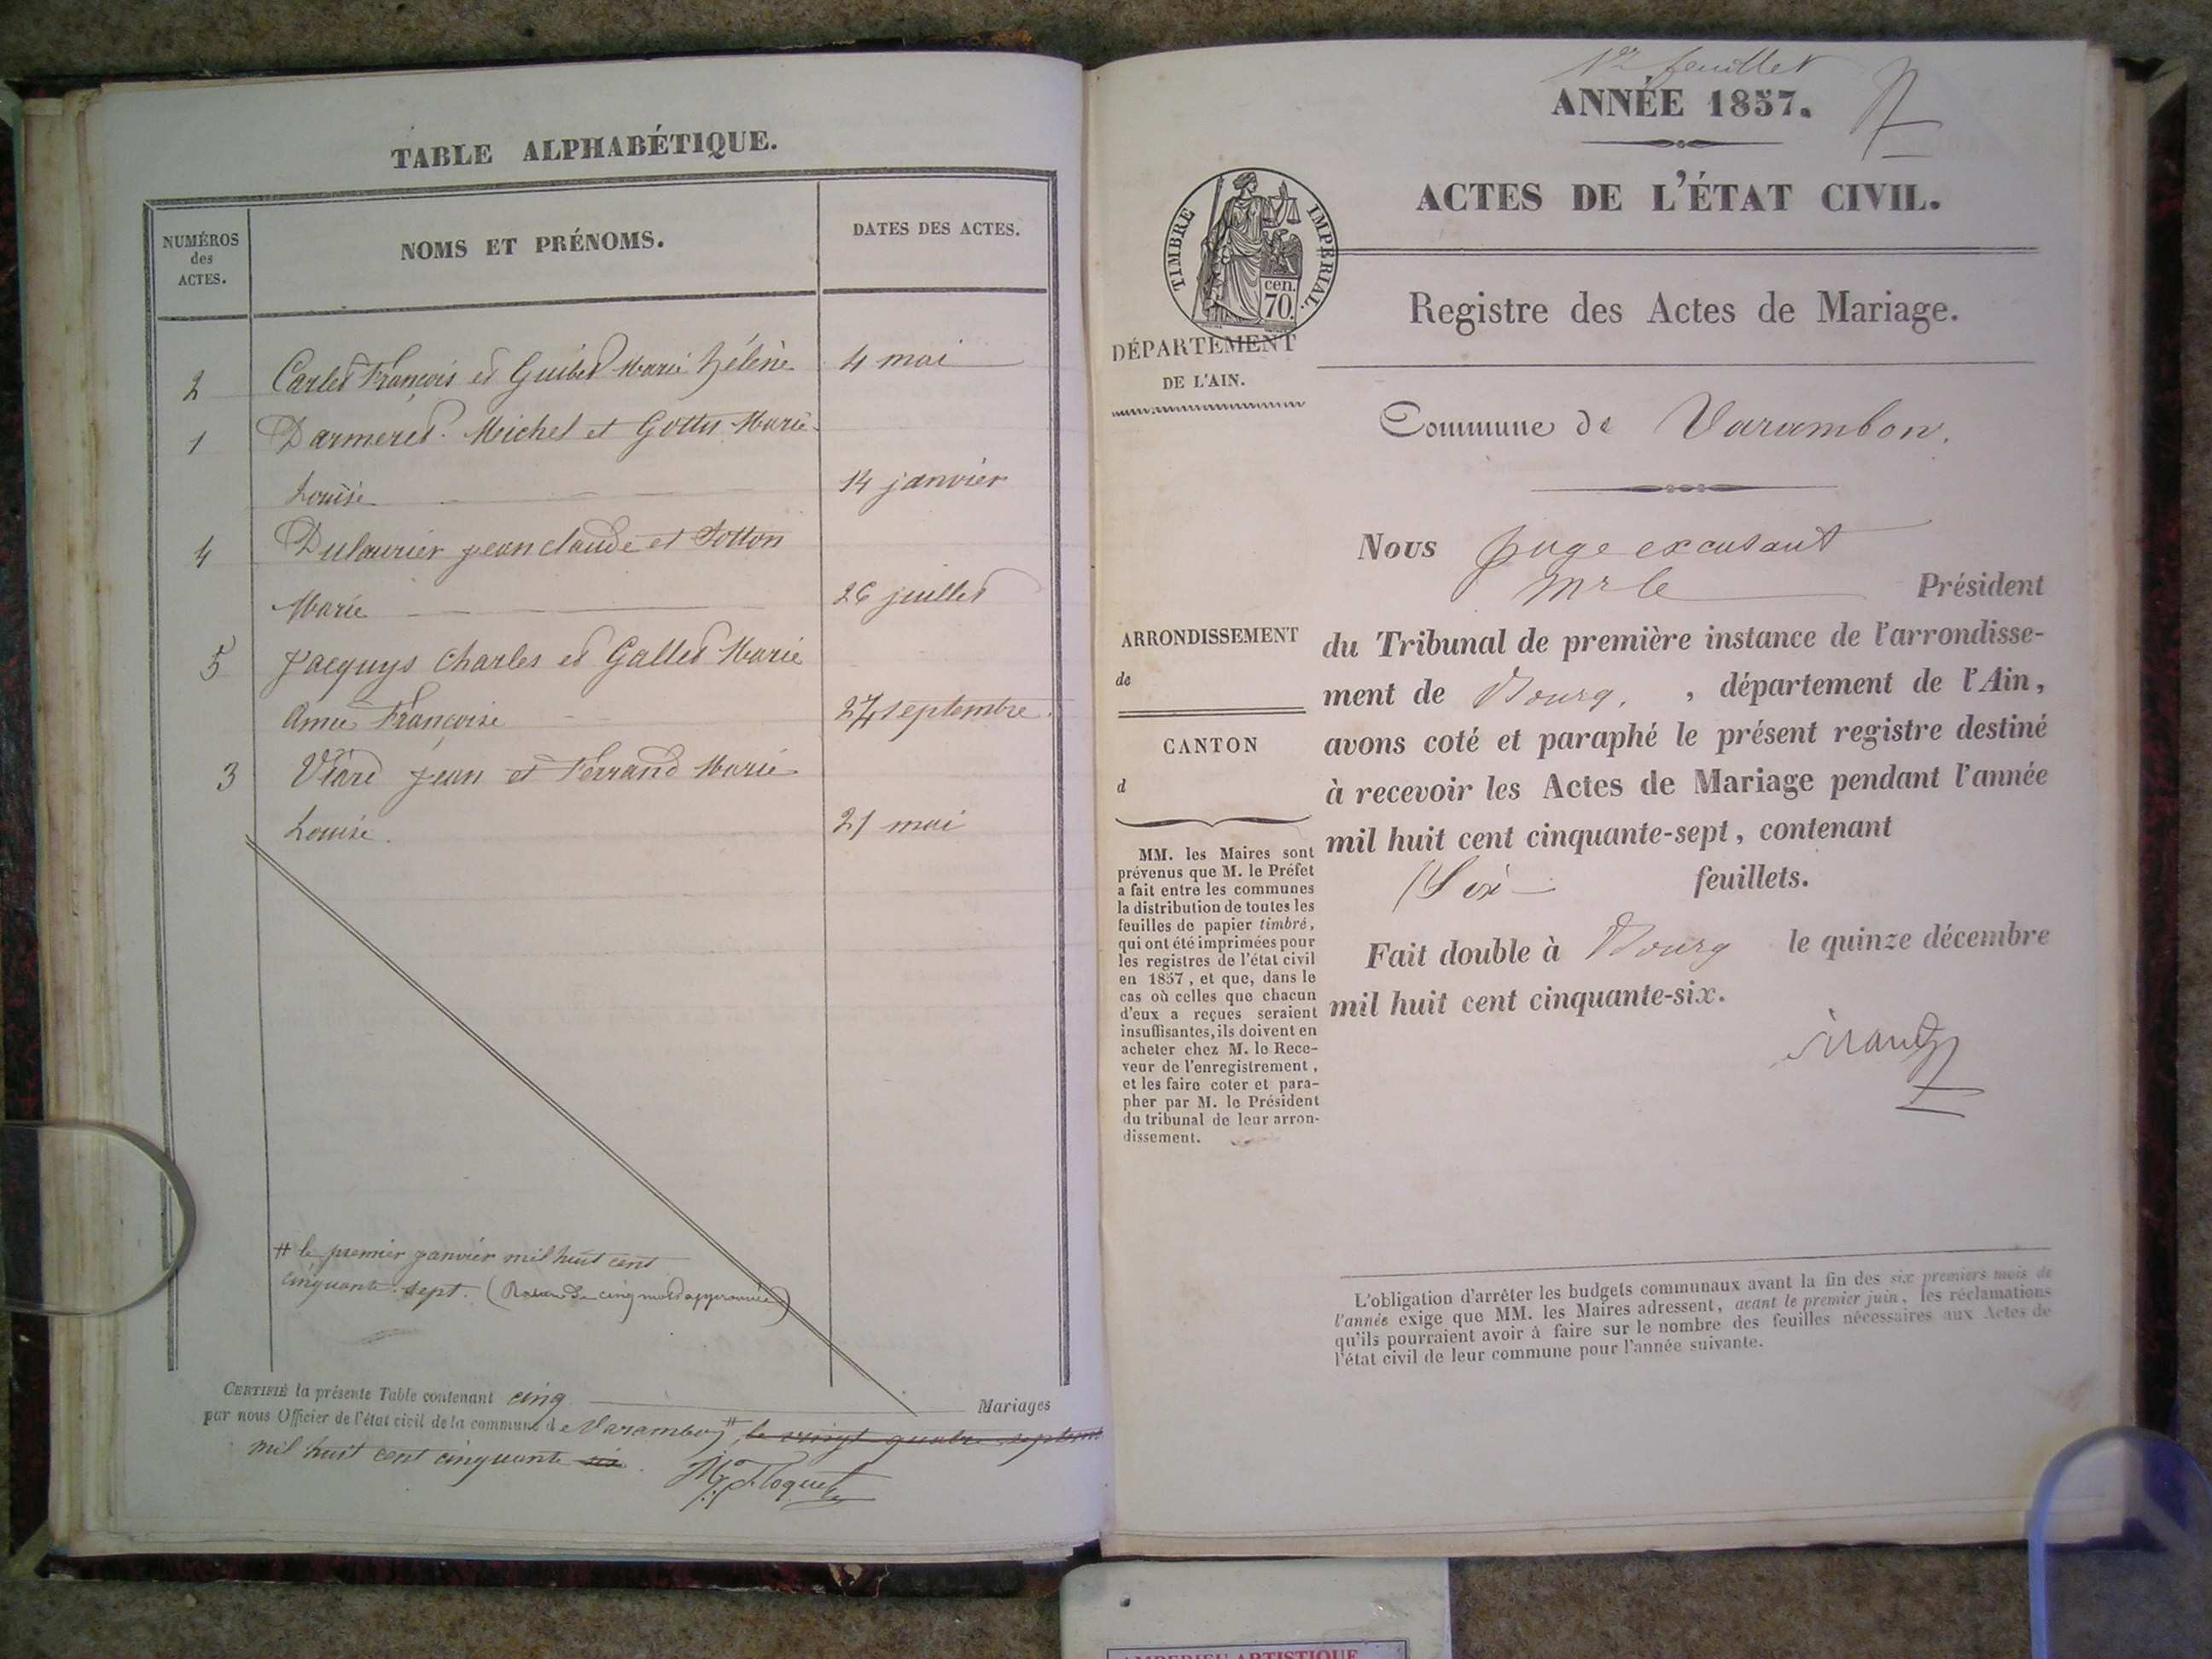 TABLE ALPHABÉTIQUE.
NUMÉROS
des
ACTES.
NOMS ET PRÉNOMS.
DATES DES ACTES.
2 Carles François et Guibet Marie hélène 4 mai
1 Darmeret Michel et Gottu Marie
Louise 14 janvier
4 Dulaurier jean claude et Totton
Marie 26 juillet
5 Jacquys Charles et Gallet Marie
Françoise 24 septembre
3 Viard jean et Ferrand Marie
Louise 21 mai
# le premier janvier mil huit cent
cinquante-sept. ( de cinq mots )
CERTIFIÉ la présente Table contenant cinq Mariages
par nous Officier de l'état civil de la commune de Varambon # le vingt quatre septembre
mil huit cent cinquante six.
1er feuillet
ANNÉE 1857.
ACTES DE L'ÉTAT CIVIL.
TIMBRE IMPÉRIAL.
cen.
70.
Registre des Actes de Mariage.
DÉPARTEMENT
DE L'AIN.
Commune de Varambon.
Nous juge excusant
Mr le Président
du Tribunal de première instance de l'arrondisse-
ment de Bourg, , département de l'Ain,
avons coté et paraphé le présent registre destiné
à recevoir les Actes de Mariage pendant l'année
mil huit cent cinquante-sept, contenant
Six feuillets.
Fait double à Bourg le quinze décembre
mil huit cent cinquante-six.
ARRONDISSEMENT
de
CANTON
d
MM. les Maires sont
prévenus que M. le Préfet
a fait entre les communes
la distribution de toutes les
feuilles de papier timbré,
qui ont été imprimées pour
les registres de l'état civil
en 1857, et que, dans le
cas où celles que chacun
d'eux a reçues seraient
insuffisantes, ils doivent en
acheter chez M. le Rece-
veur de l'enregistrement,
et les faire coter et para-
pher par M. le Président
du tribunal de leur arron-
dissement.
L'obligation d'arrêter les budgets communaux avant la fin des six premiers mois de
l'année exige que MM. les Maires adressent, avant le premier juin, les réclamations
qu'ils pourraient avoir à faire sur le nombre des feuilles nécessaires aux Actes de
l'état civil de leur commune pour l'année suivante.